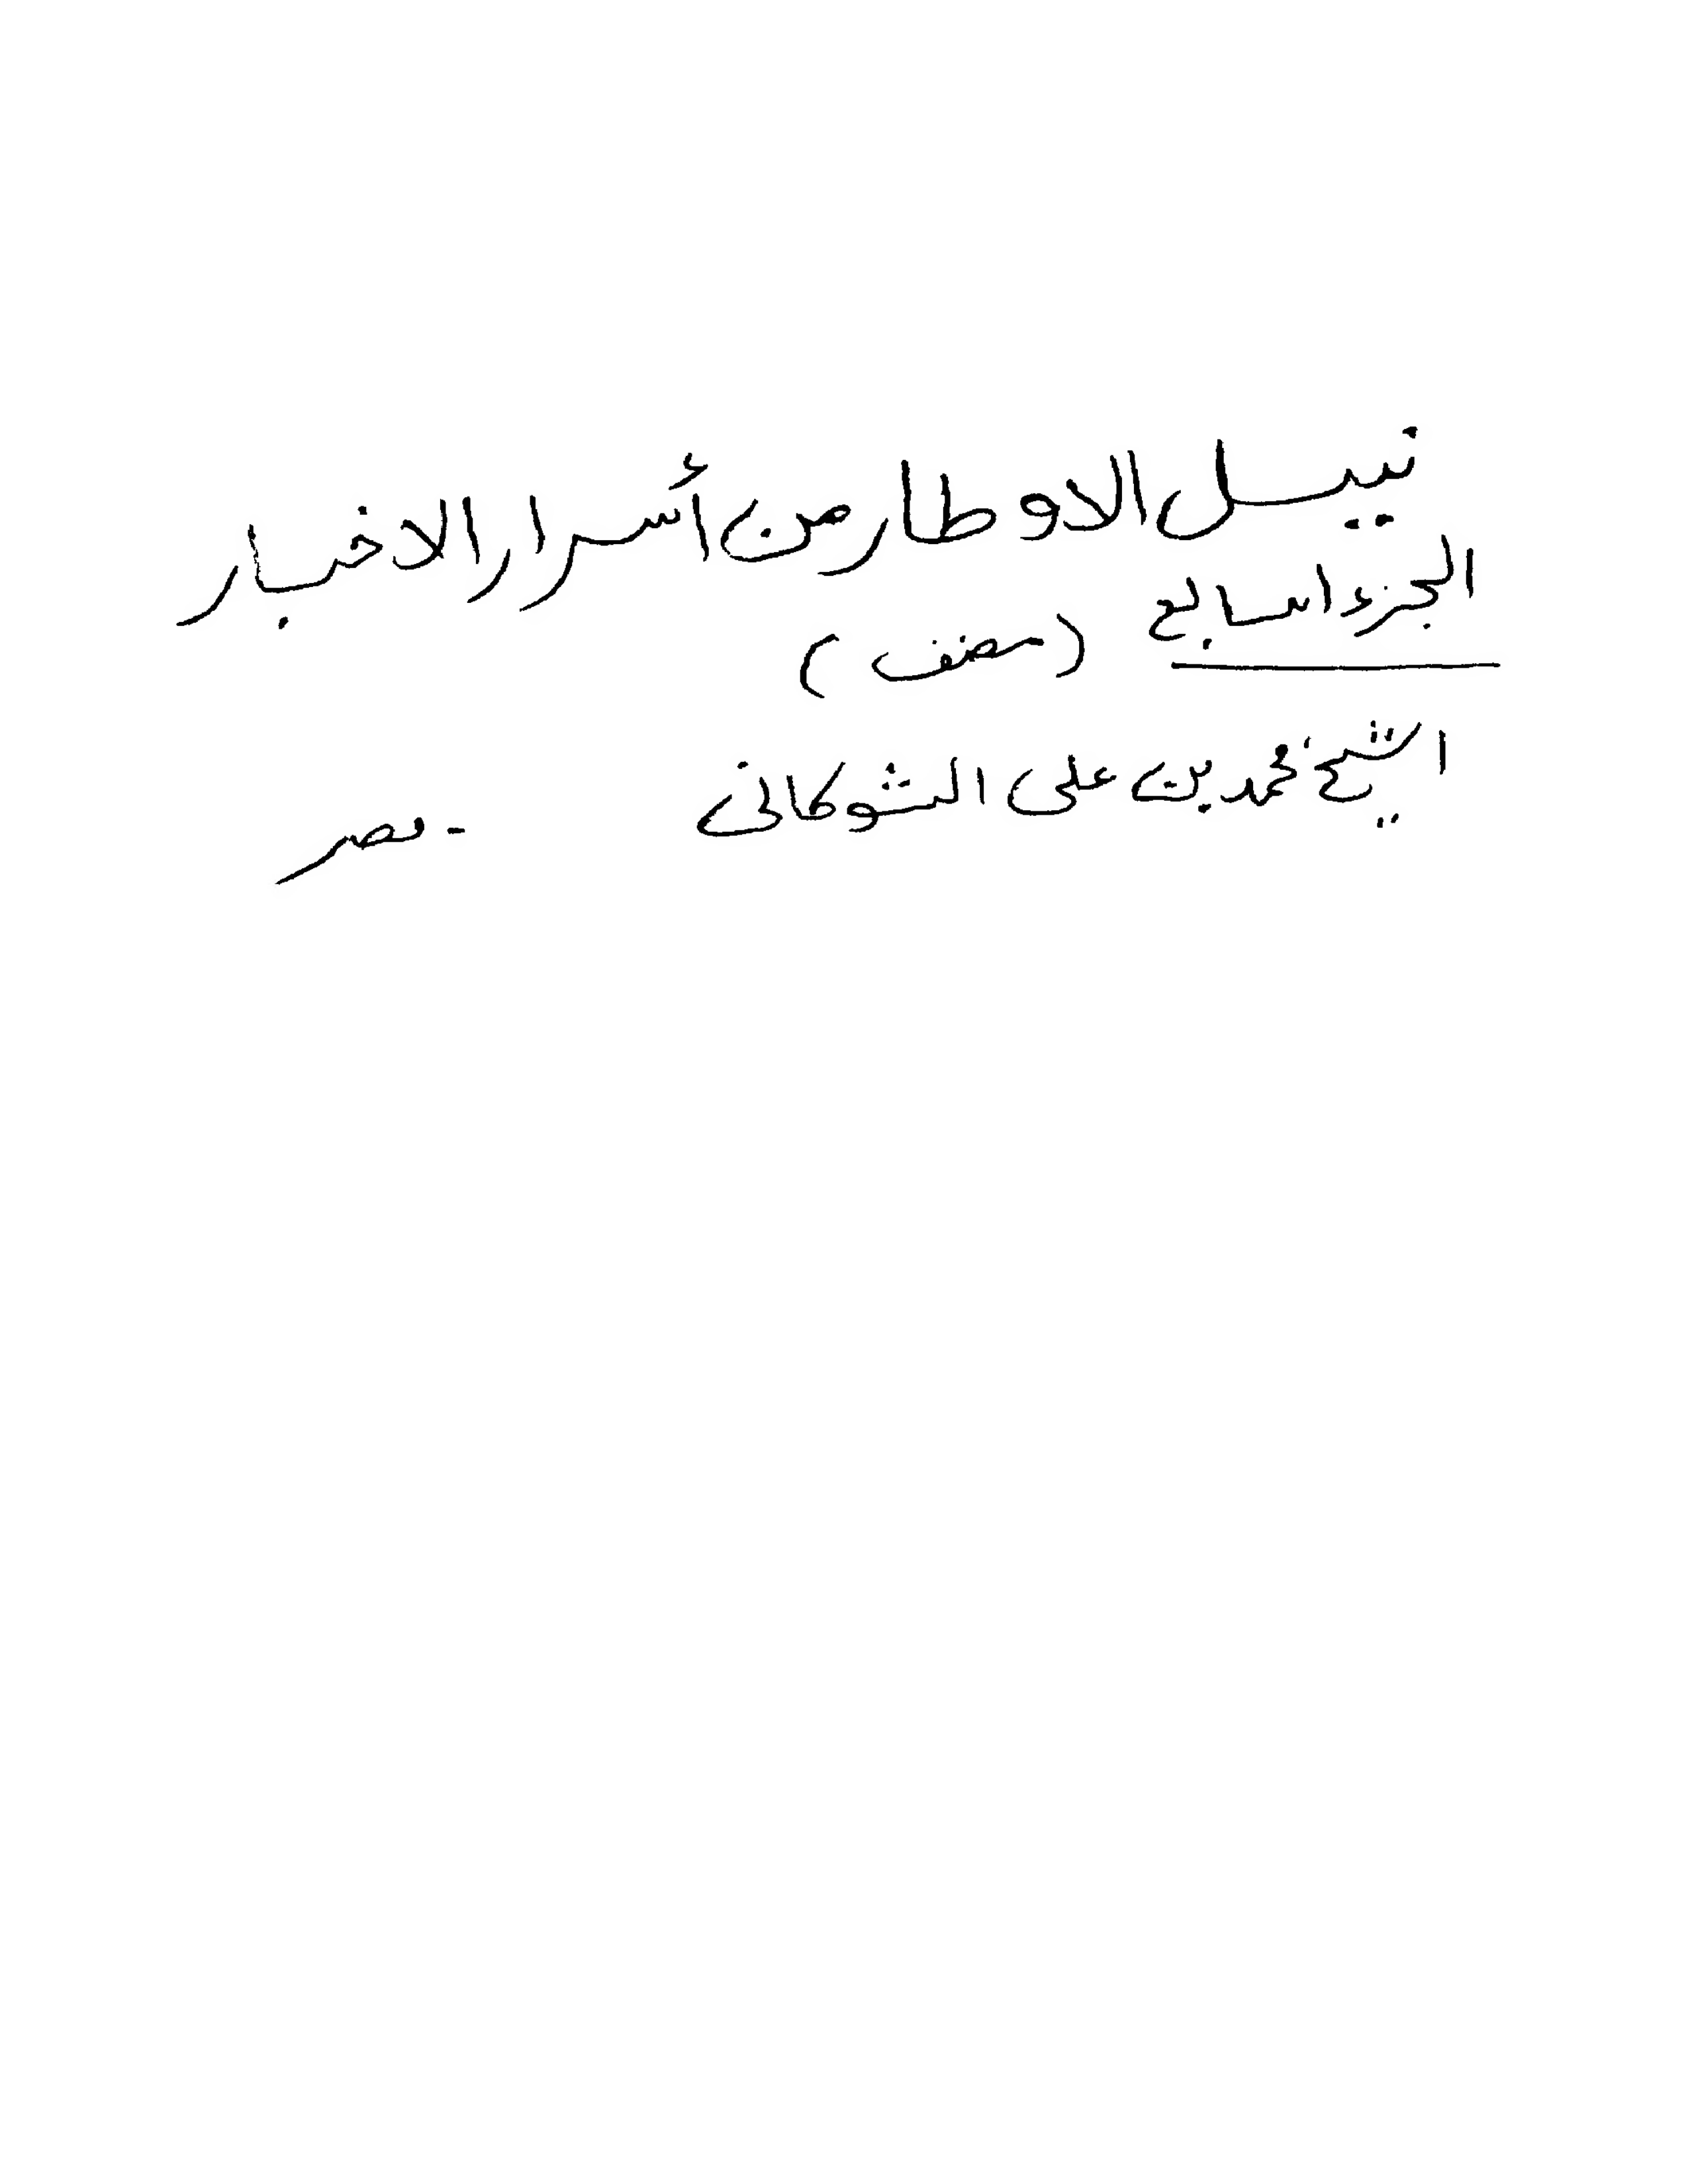 نيل الاوطار من أسرار الاخبار
الجزء السابع
(مصنف)
الشيخ محمد بن على الشوكانى - مصر